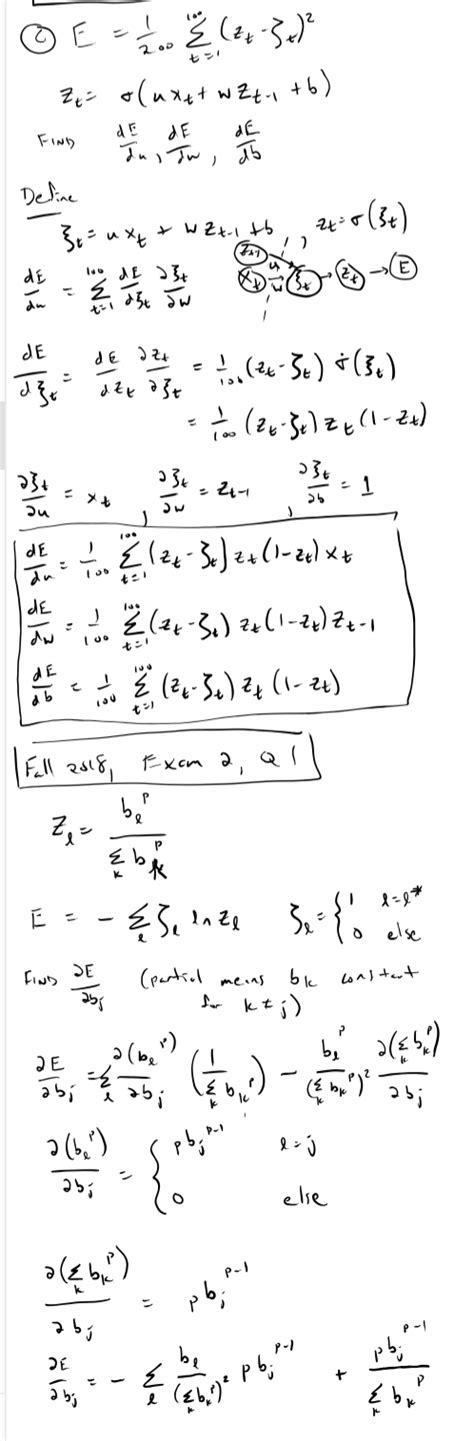 ② E = 1/200 Σ_{t=1}^{100} (z_t - ζ_t)²
z_t = σ(u x_t + w z_{t-1} + b)
FIND dE/du, dE/dw, dE/db
Define
ξ_t = u x_t + w z_{t-1} + b, , z_t = σ(ξ_t)
z_{t-1}
dE/du = Σ_{t=1}^{100} dE/dξ_t ∂ξ_t/∂w
x_t → u w ξ_t → z_t → E
dE/dξ_t = dE/dz_t ∂z_t/∂ξ_t = 1/100 (z_t - ζ_t) σ̇(ξ_t)
= 1/100 (z_t - ζ_t) z_t (1 - z_t)
∂ξ_t/∂u = x_t, ∂ξ_t/∂w = z_{t-1}, ∂ξ_t/∂b = 1
dE/du = 1/100 Σ_{t=1}^{100} (z_t - ζ_t) z_t (1 - z_t) x_t
dE/dw = 1/100 Σ_{t=1}^{100} (z_t - ζ_t) z_t (1 - z_t) z_{t-1}
dE/db = 1/100 Σ_{t=1}^{100} (z_t - ζ_t) z_t (1 - z_t)
Fall 2018, Exam 2, Q 1
z_ℓ = b_ℓ^p / Σ_k b_k^p
E = - Σ_ℓ ζ_ℓ ln z_ℓ ζ_ℓ = { 1 ℓ = ℓ*
0 else
FIND ∂E/∂b_j (partial means b_k constant
for k ≠ j)
∂E/∂b_j = Σ_ℓ ∂(b_ℓ^p)/∂b_j (1/Σ_k b_k^p) - b_ℓ^p/(Σ_k b_k^p)² ∂(Σ_k b_k^p)/∂b_j
∂(b_ℓ^p)/∂b_j = { p b_j^{p-1} ℓ = j
0 else
∂(Σ_k b_k^p)/∂b_j = p b_j^{p-1}
∂E/∂b_j = - Σ_ℓ b_ℓ/(Σ_k b_k^p)² p b_j^{p-1} + p b_j^{p-1}/Σ_k b_k^p